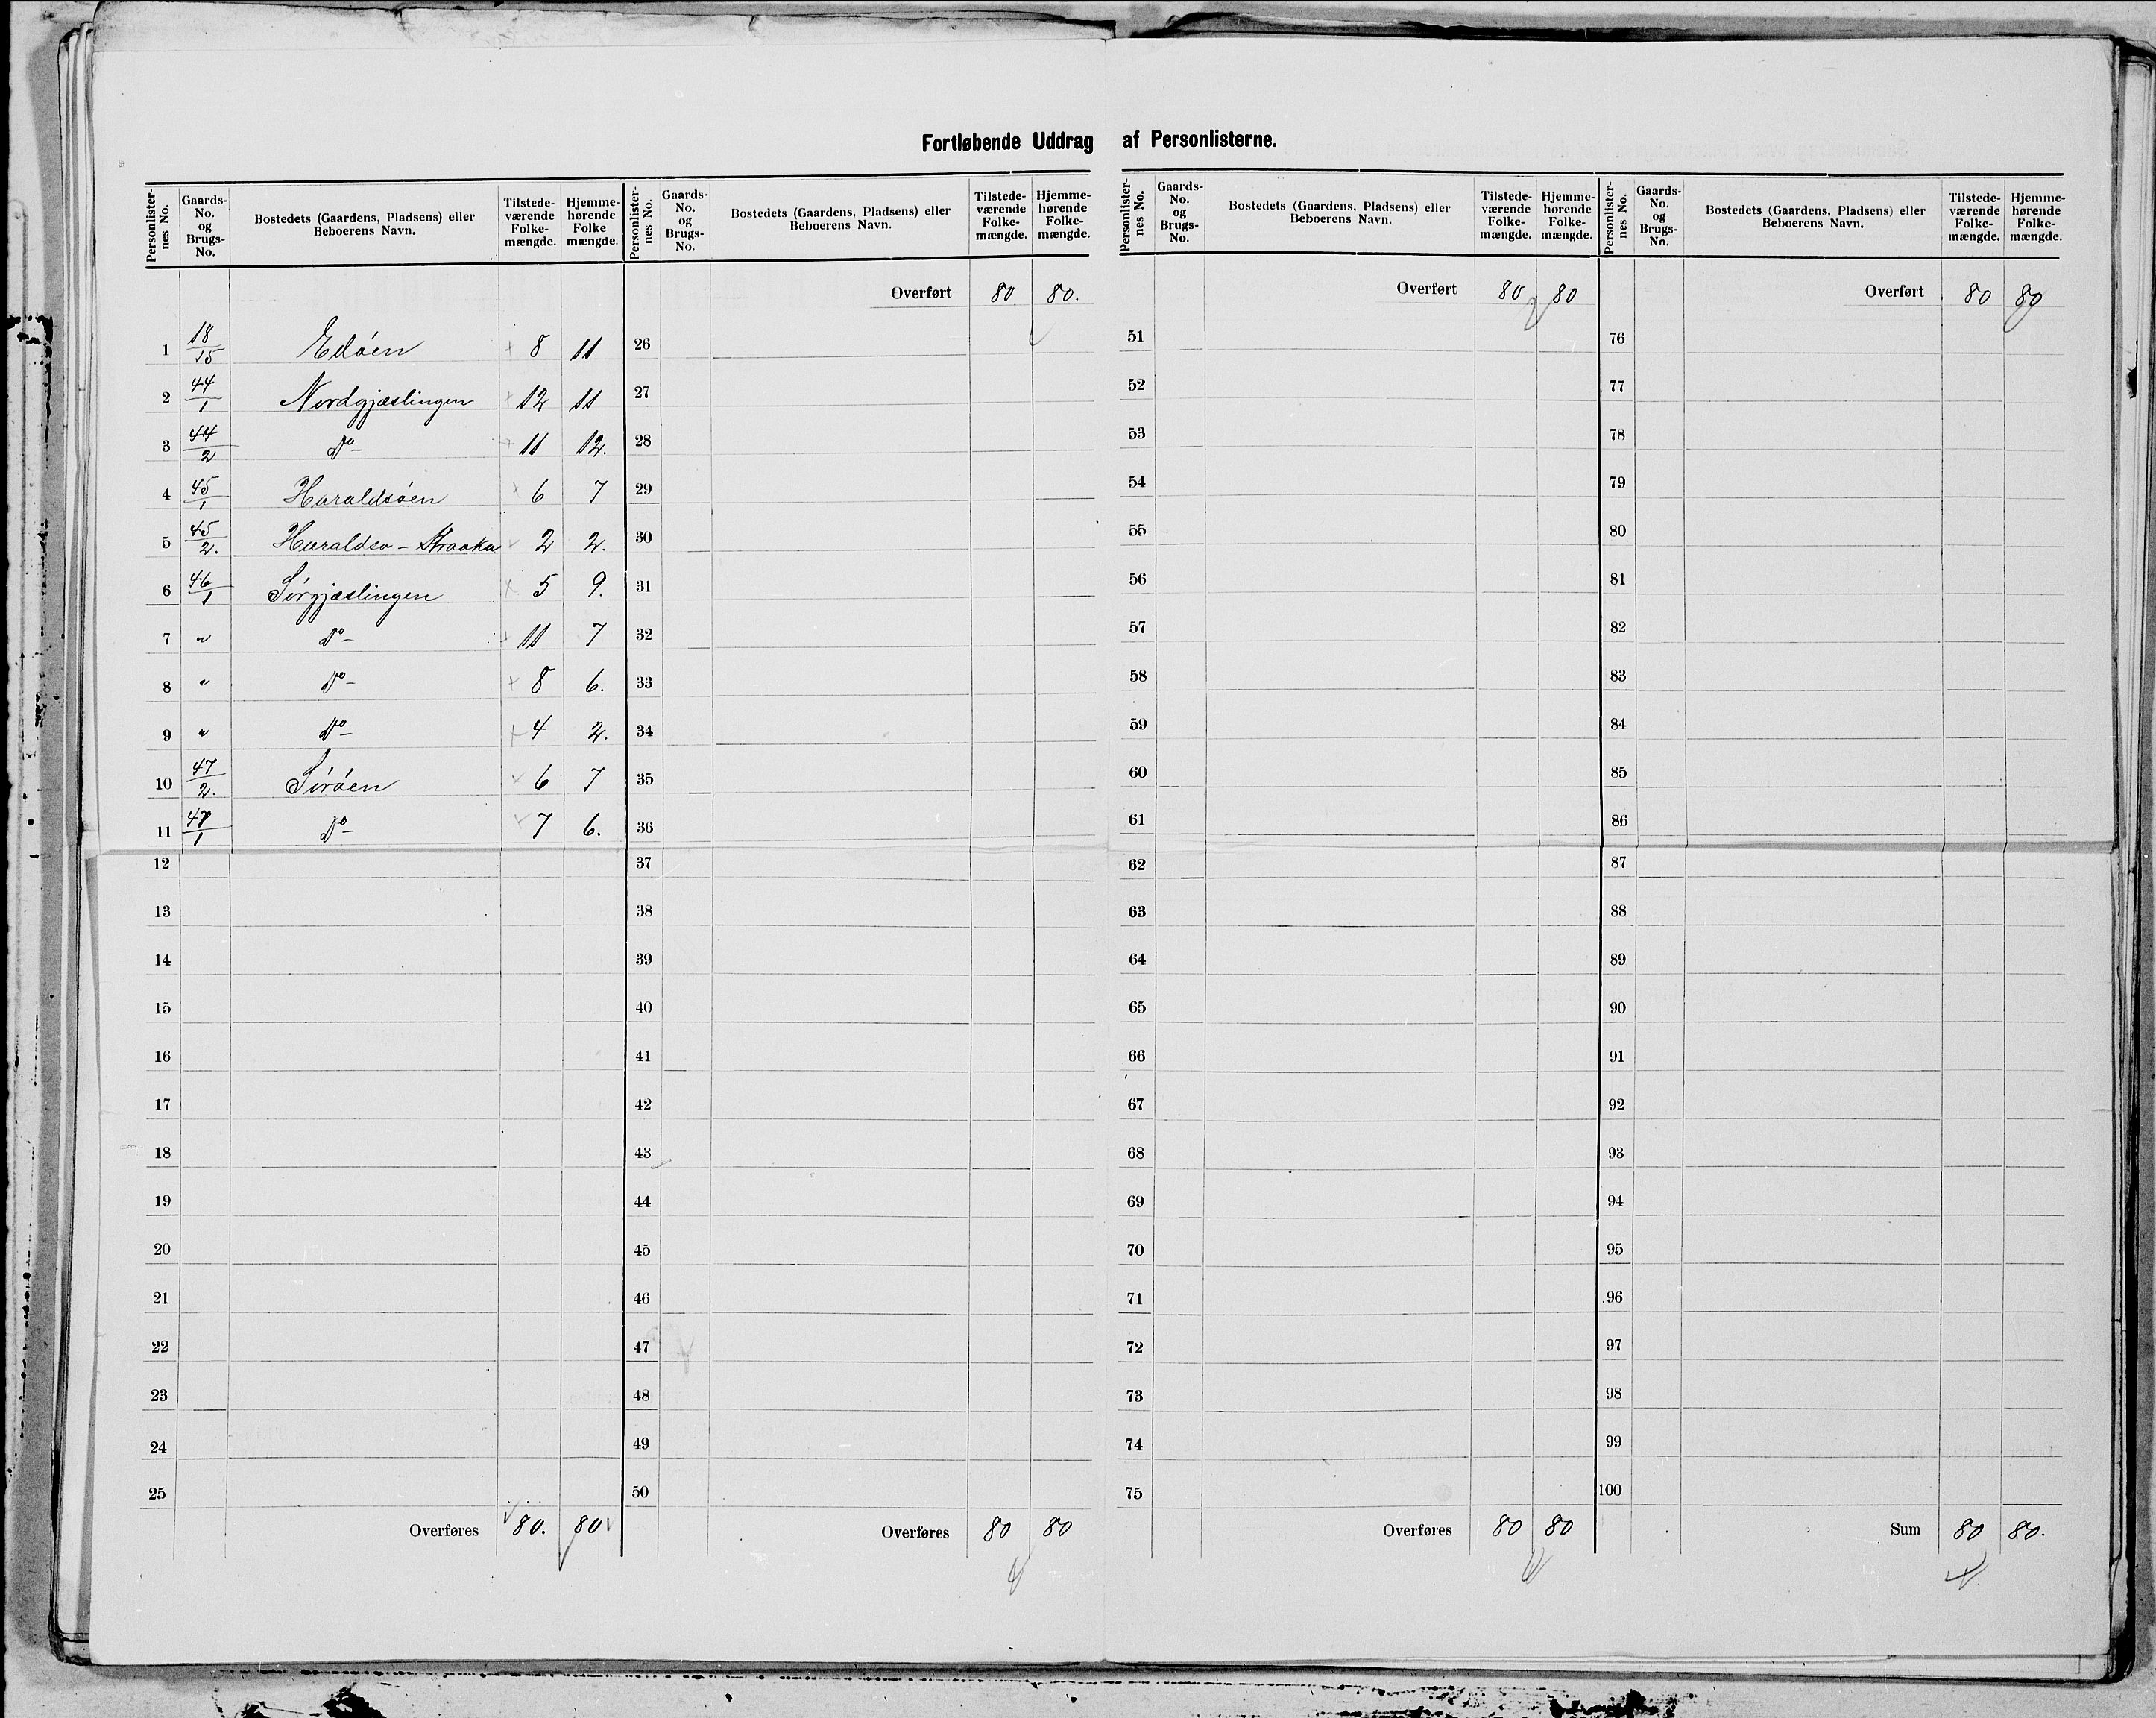 Fortløbende Uddrag af Personlisterne.
Personlister-nes No. | Gaards-No. og Brugs-No. | Bostedets (Gaardens, Pladsens) eller Beboerens Navn. | Tilstede-værende Folke-mængde. | Hjemme-hørende Folke mængde.
1 | 18/15 | Edøen | 8 | 11
2 | 44/1 | Nordgjæslingen | 12 | 11
3 | 44/2 | Do | 11 | 12.
4 | 45/1 | Haraldsøen | 6 | 7
5 | 45/2. | Haraldsø - | 2 | 2.
6 | 46/1 | Sørgjæslingen | 5 | 9.
7 | " | Do | 11 | 7
8 | " | Do | 8 | 6.
9 | " | Do | 4 | 2.
10 | 47/2. | Sørøen | 6 | 7
11 | 47/1 | Do | 7 | 6.
12
13
14
15
16
17
18
19
20
21
22
23
24
25
Overføres | 80. | 80
Personlister-nes No. | Gaards-No. og Brugs-No. | Bostedets (Gaardens, Pladsens) eller Beboerens Navn. | Tilstede-værende Folke-mængde. | Hjemme-hørende Folke-mængde.
Overført | 80 | 80.
26
27
28
29
30
31
32
33
34
35
36
37
38
39
40
41
42
43
44
45
46
47
48
49
50
Overføres | 80 | 80
Personlister-nes No. | Gaards-No. og Brugs-No. | Bostedets (Gaardens, Pladsens) eller Beboerens Navn. | Tilstede-værende Folke-mængde. | Hjemme-hørende Folke-mængde.
Overført | 80 | 80
51
52
53
54
55
56
57
58
59
60
61
62
63
64
65
66
67
68
69
70
71
72
73
74
75
Overføres | 80 | 80
Personlister-nes No. | Gaards-No. og Brugs-No. | Bostedets (Gaardens, Pladsens) eller Beboerens Navn. | Tilstede-værende Folke-mængde. | Hjemme-hørende Folke-mængde.
Overført | 80 | 80
76
77
78
79
80
81
82
83
84
85
86
87
88
89
90
91
92
93
94
95
96
97
98
99
100
Sum | 80 | 80.